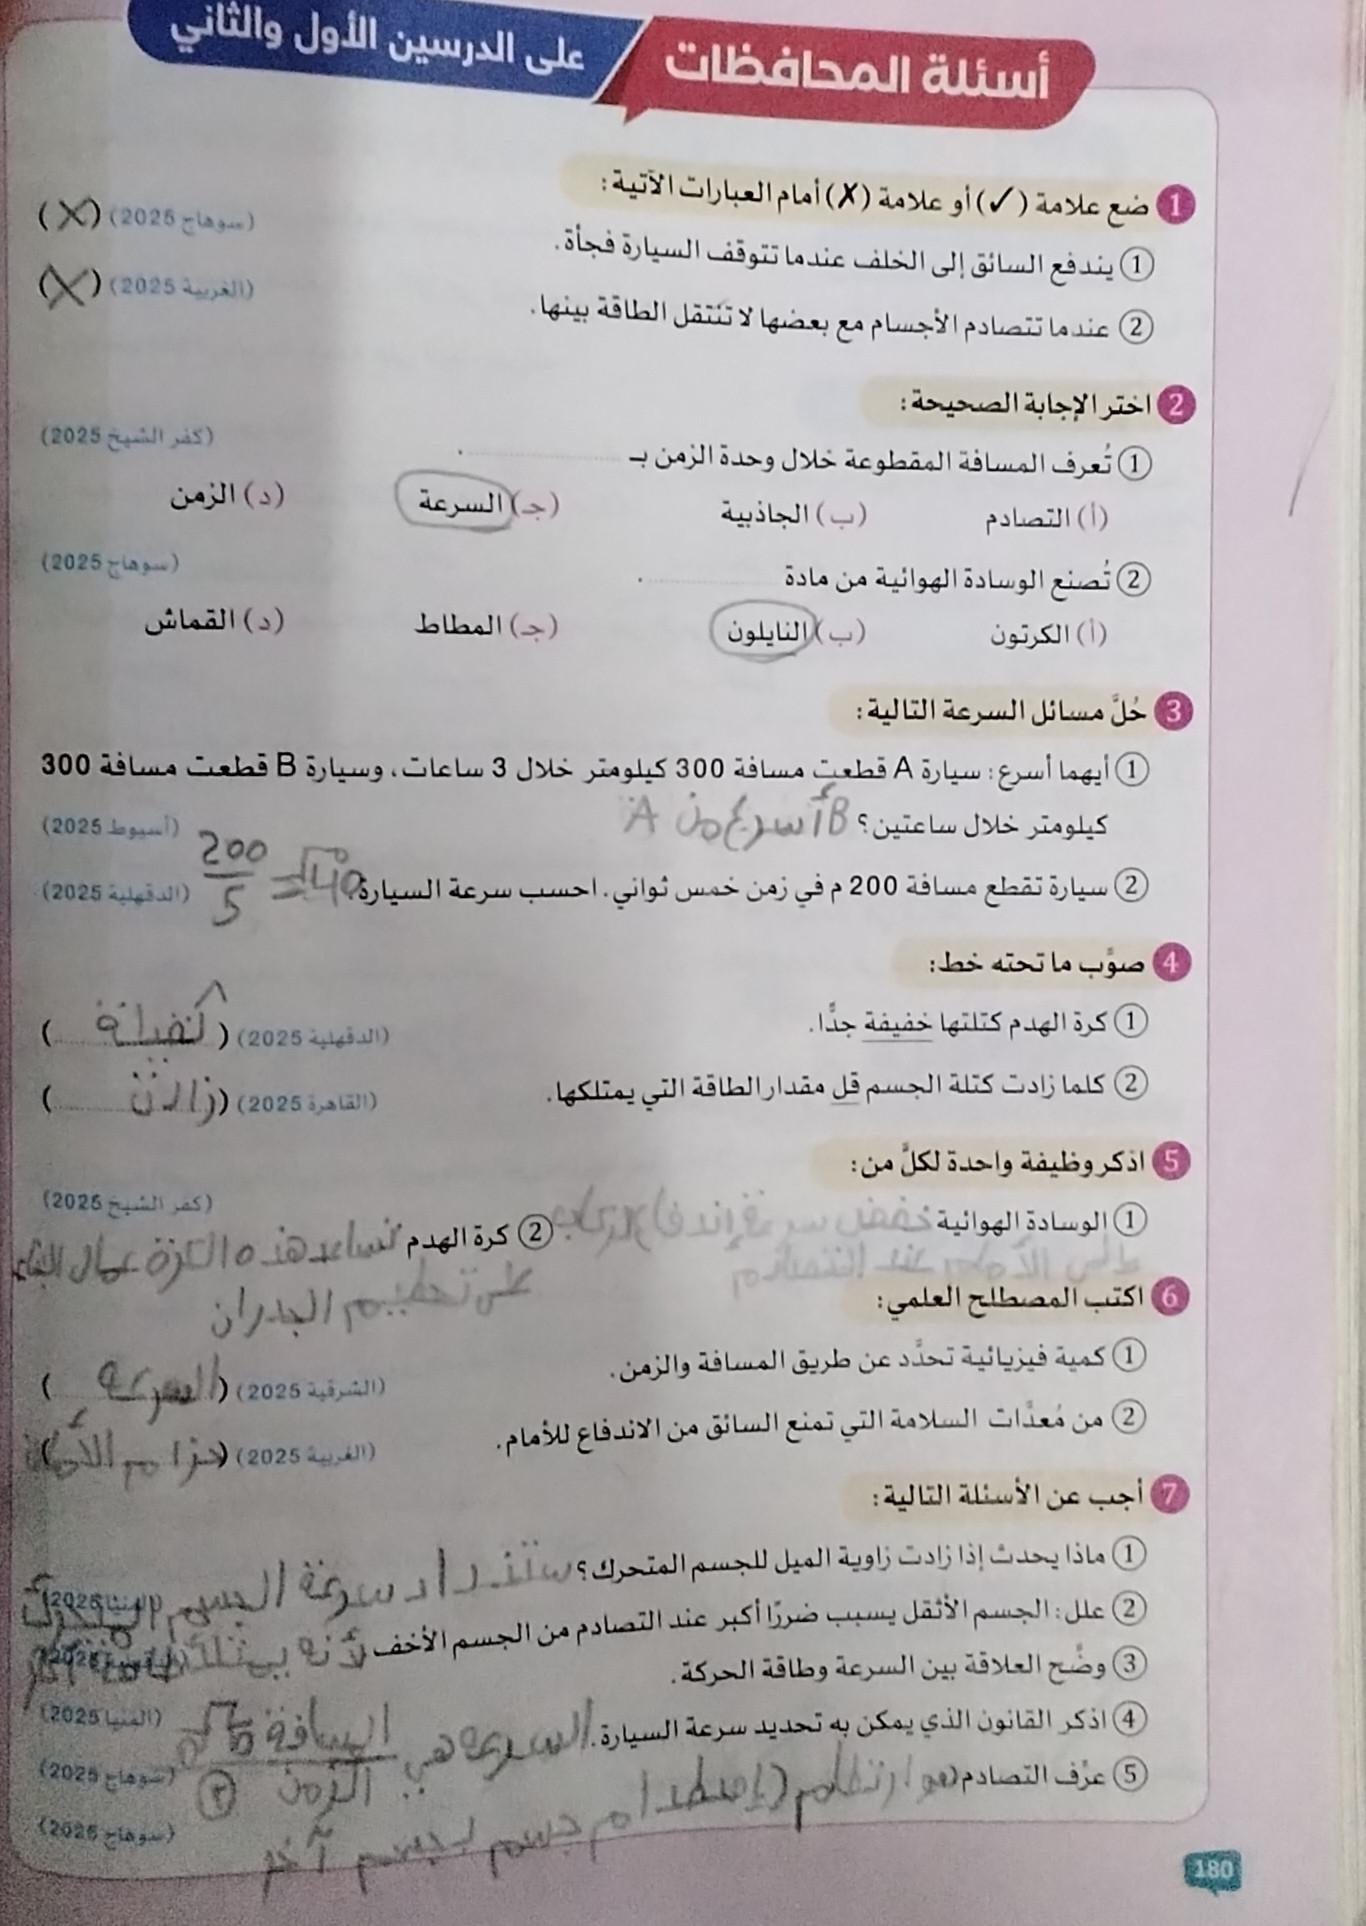 أسئلة المحافظات على الدرسين الأول والثاني
1 ضع علامة (✓) أو علامة (✗) أمام العبارات الآتية:
① يندفع السائق إلى الخلف عندما تتوقف السيارة فجأة. (سوهاج 2025) (X)
② عندما تتصادم الأجسام مع بعضها لا تنتقل الطاقة بينها. (الغربية 2025) (X)
2 اختر الإجابة الصحيحة:
① تُعرف المسافة المقطوعة خلال وحدة الزمن بـ .................... . (كفر الشيخ 2025)
(أ) التصادم (ب) الجاذبية (جـ) السرعة (د) الزمن
② تُصنع الوسادة الهوائية من مادة .................... . (سوهاج 2025)
(أ) الكرتون (ب) النايلون (جـ) المطاط (د) القماش
3 حُلَّ مسائل السرعة التالية:
① أيهما أسرع: سيارة A قطعت مسافة 300 كيلومتر خلال 3 ساعات، وسيارة B قطعت مسافة 300
كيلومتر خلال ساعتين؟ B أسرع من A (أسيوط 2025)
② سيارة تقطع مسافة 200 م في زمن خمس ثواني. احسب سرعة السيارة. 200/5 = 40 (الدقهلية 2025)
4 صوِّب ما تحته خط:
① كرة الهدم كتلتها خفيفة جدًّا. (الدقهلية 2025) ( )
② كلما زادت كتلة الجسم قل مقدار الطاقة التي يمتلكها. (القاهرة 2025) ( )
5 اذكر وظيفة واحدة لكلٍّ من: (كفر الشيخ 2025)
① الوسادة الهوائية خفض سرعة إندفاع الركاب ② كرة الهدم تساعد هذه الكرة عمال البناء
إلى الأمام عند التصادم على تحطيم الجدران
6 اكتب المصطلح العلمي:
① كمية فيزيائية تحدَّد عن طريق المسافة والزمن. (الشرقية 2025) (السرعة)
② من مُعدَّات السلامة التي تمنع السائق من الاندفاع للأمام. (الغربية 2025) (حزام الأمان)
7 أجب عن الأسئلة التالية:
① ماذا يحدث إذا زادت زاوية الميل للجسم المتحرك؟ ستزداد سرعة الجسم المتحرك (المنيا 2025)
② علل: الجسم الأثقل يسبب ضررًا أكبر عند التصادم من الجسم الأخف لأنه يمتلك طاقة أكبر
③ وضِّح العلاقة بين السرعة وطاقة الحركة. (المنيا 2025)
④ اذكر القانون الذي يمكن به تحديد سرعة السيارة. السرعة هي المسافة / الزمن (سوهاج 2025)
⑤ عرِّف التصادم هو ارتطام (إصطدام جسم بجسم آخر (سوهاج 2025)
180